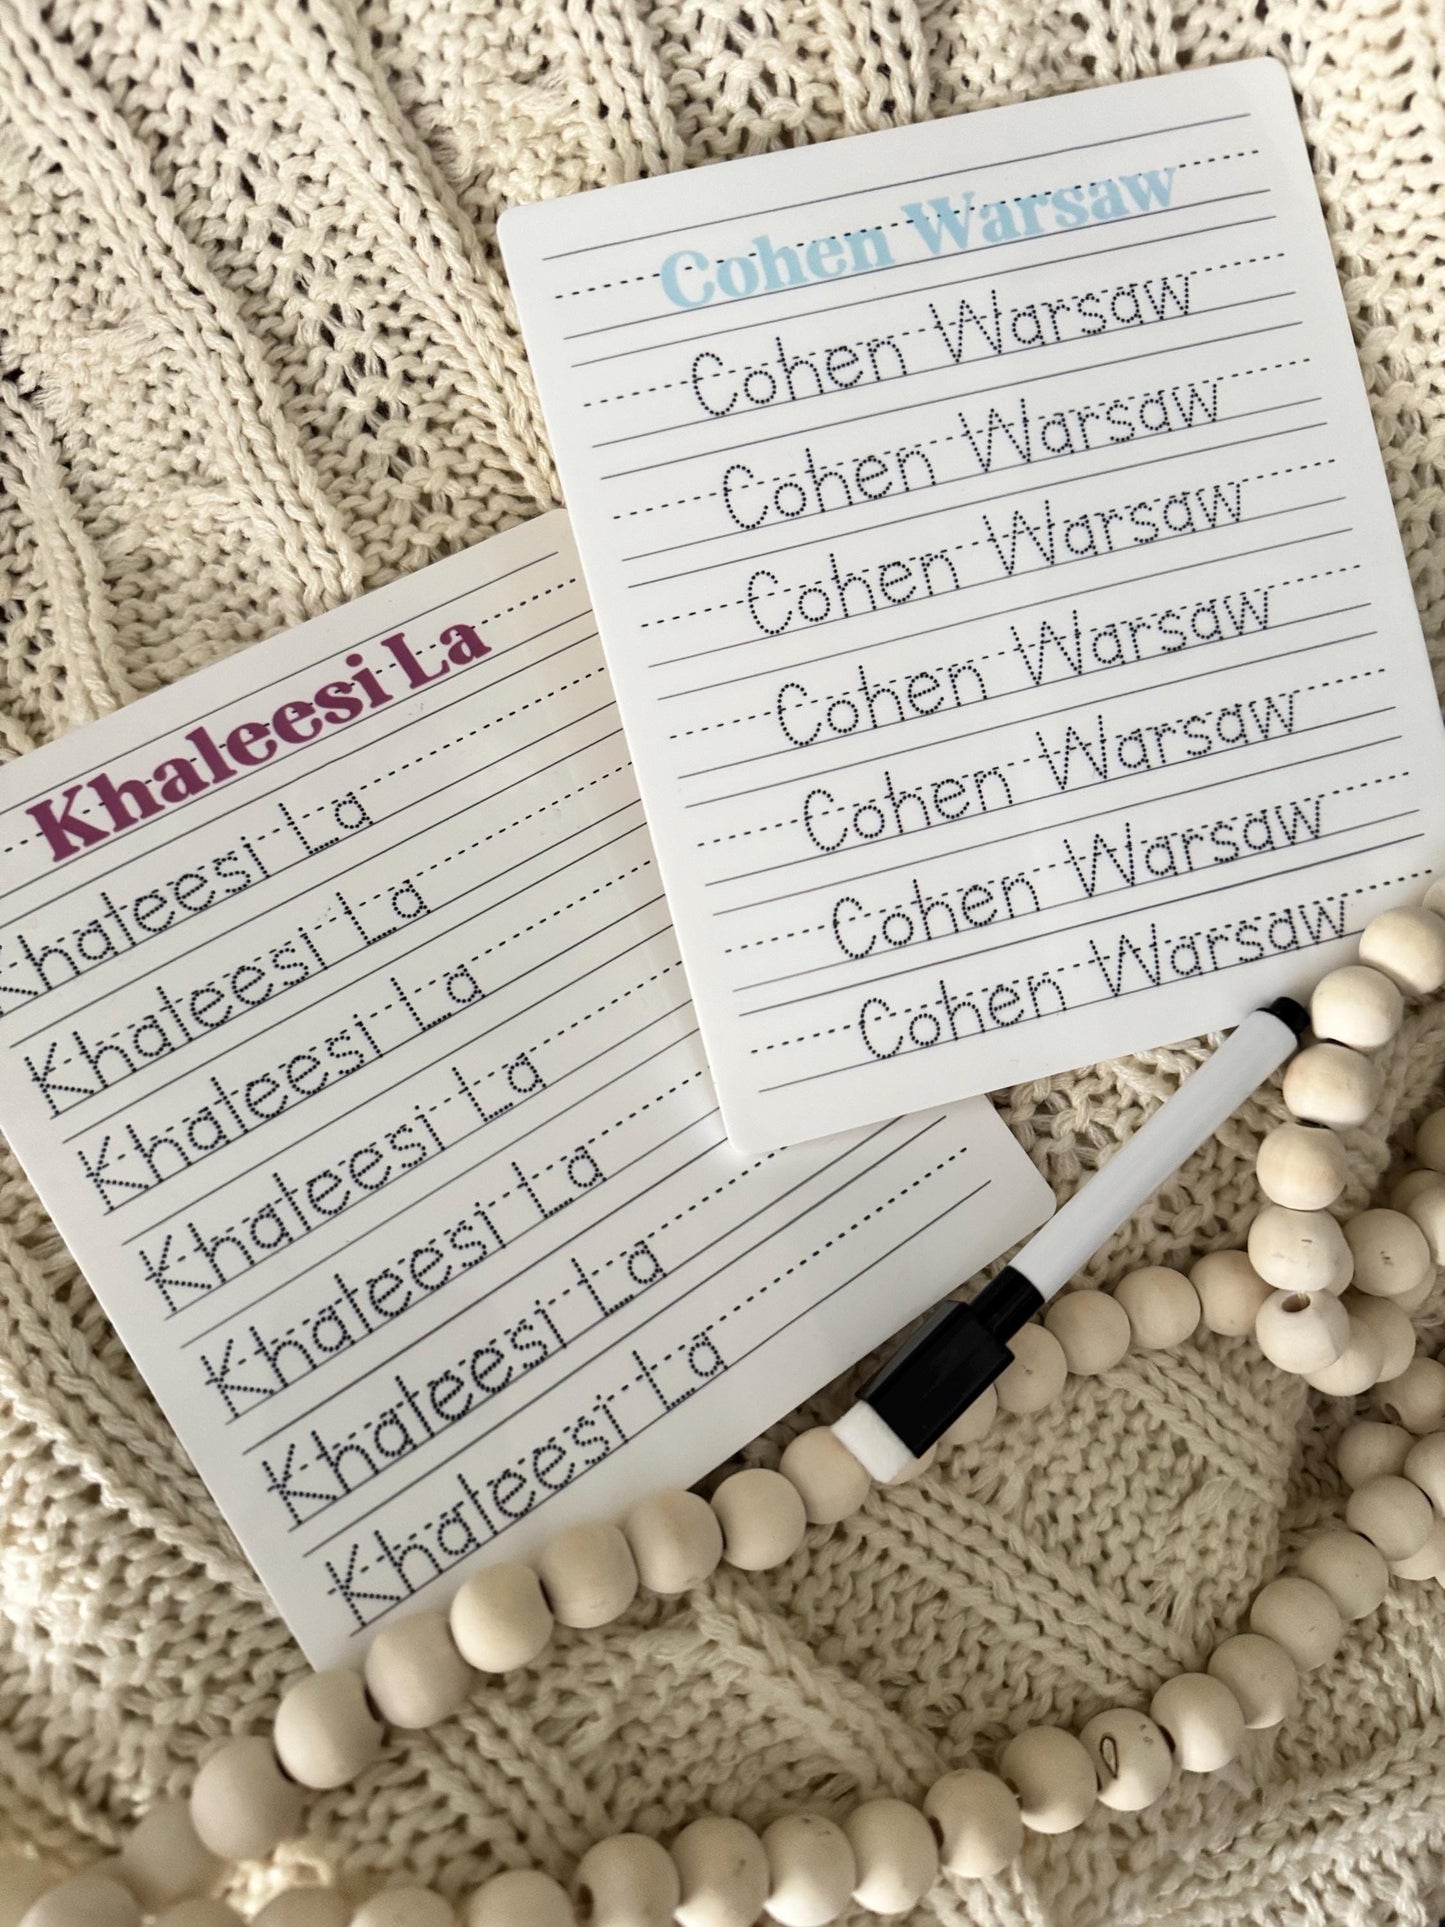 Cohen Warsaw
Cohen Warsaw
Cohen Warsaw
Cohen Warsaw
Cohen Warsaw
Cohen Warsaw
Cohen Warsaw
Cohen Warsaw
Khaleesi La
Khaleesi La
Khaleesi La
Khaleesi La
Khaleesi La
Khaleesi La
Khaleesi La
Khaleesi La